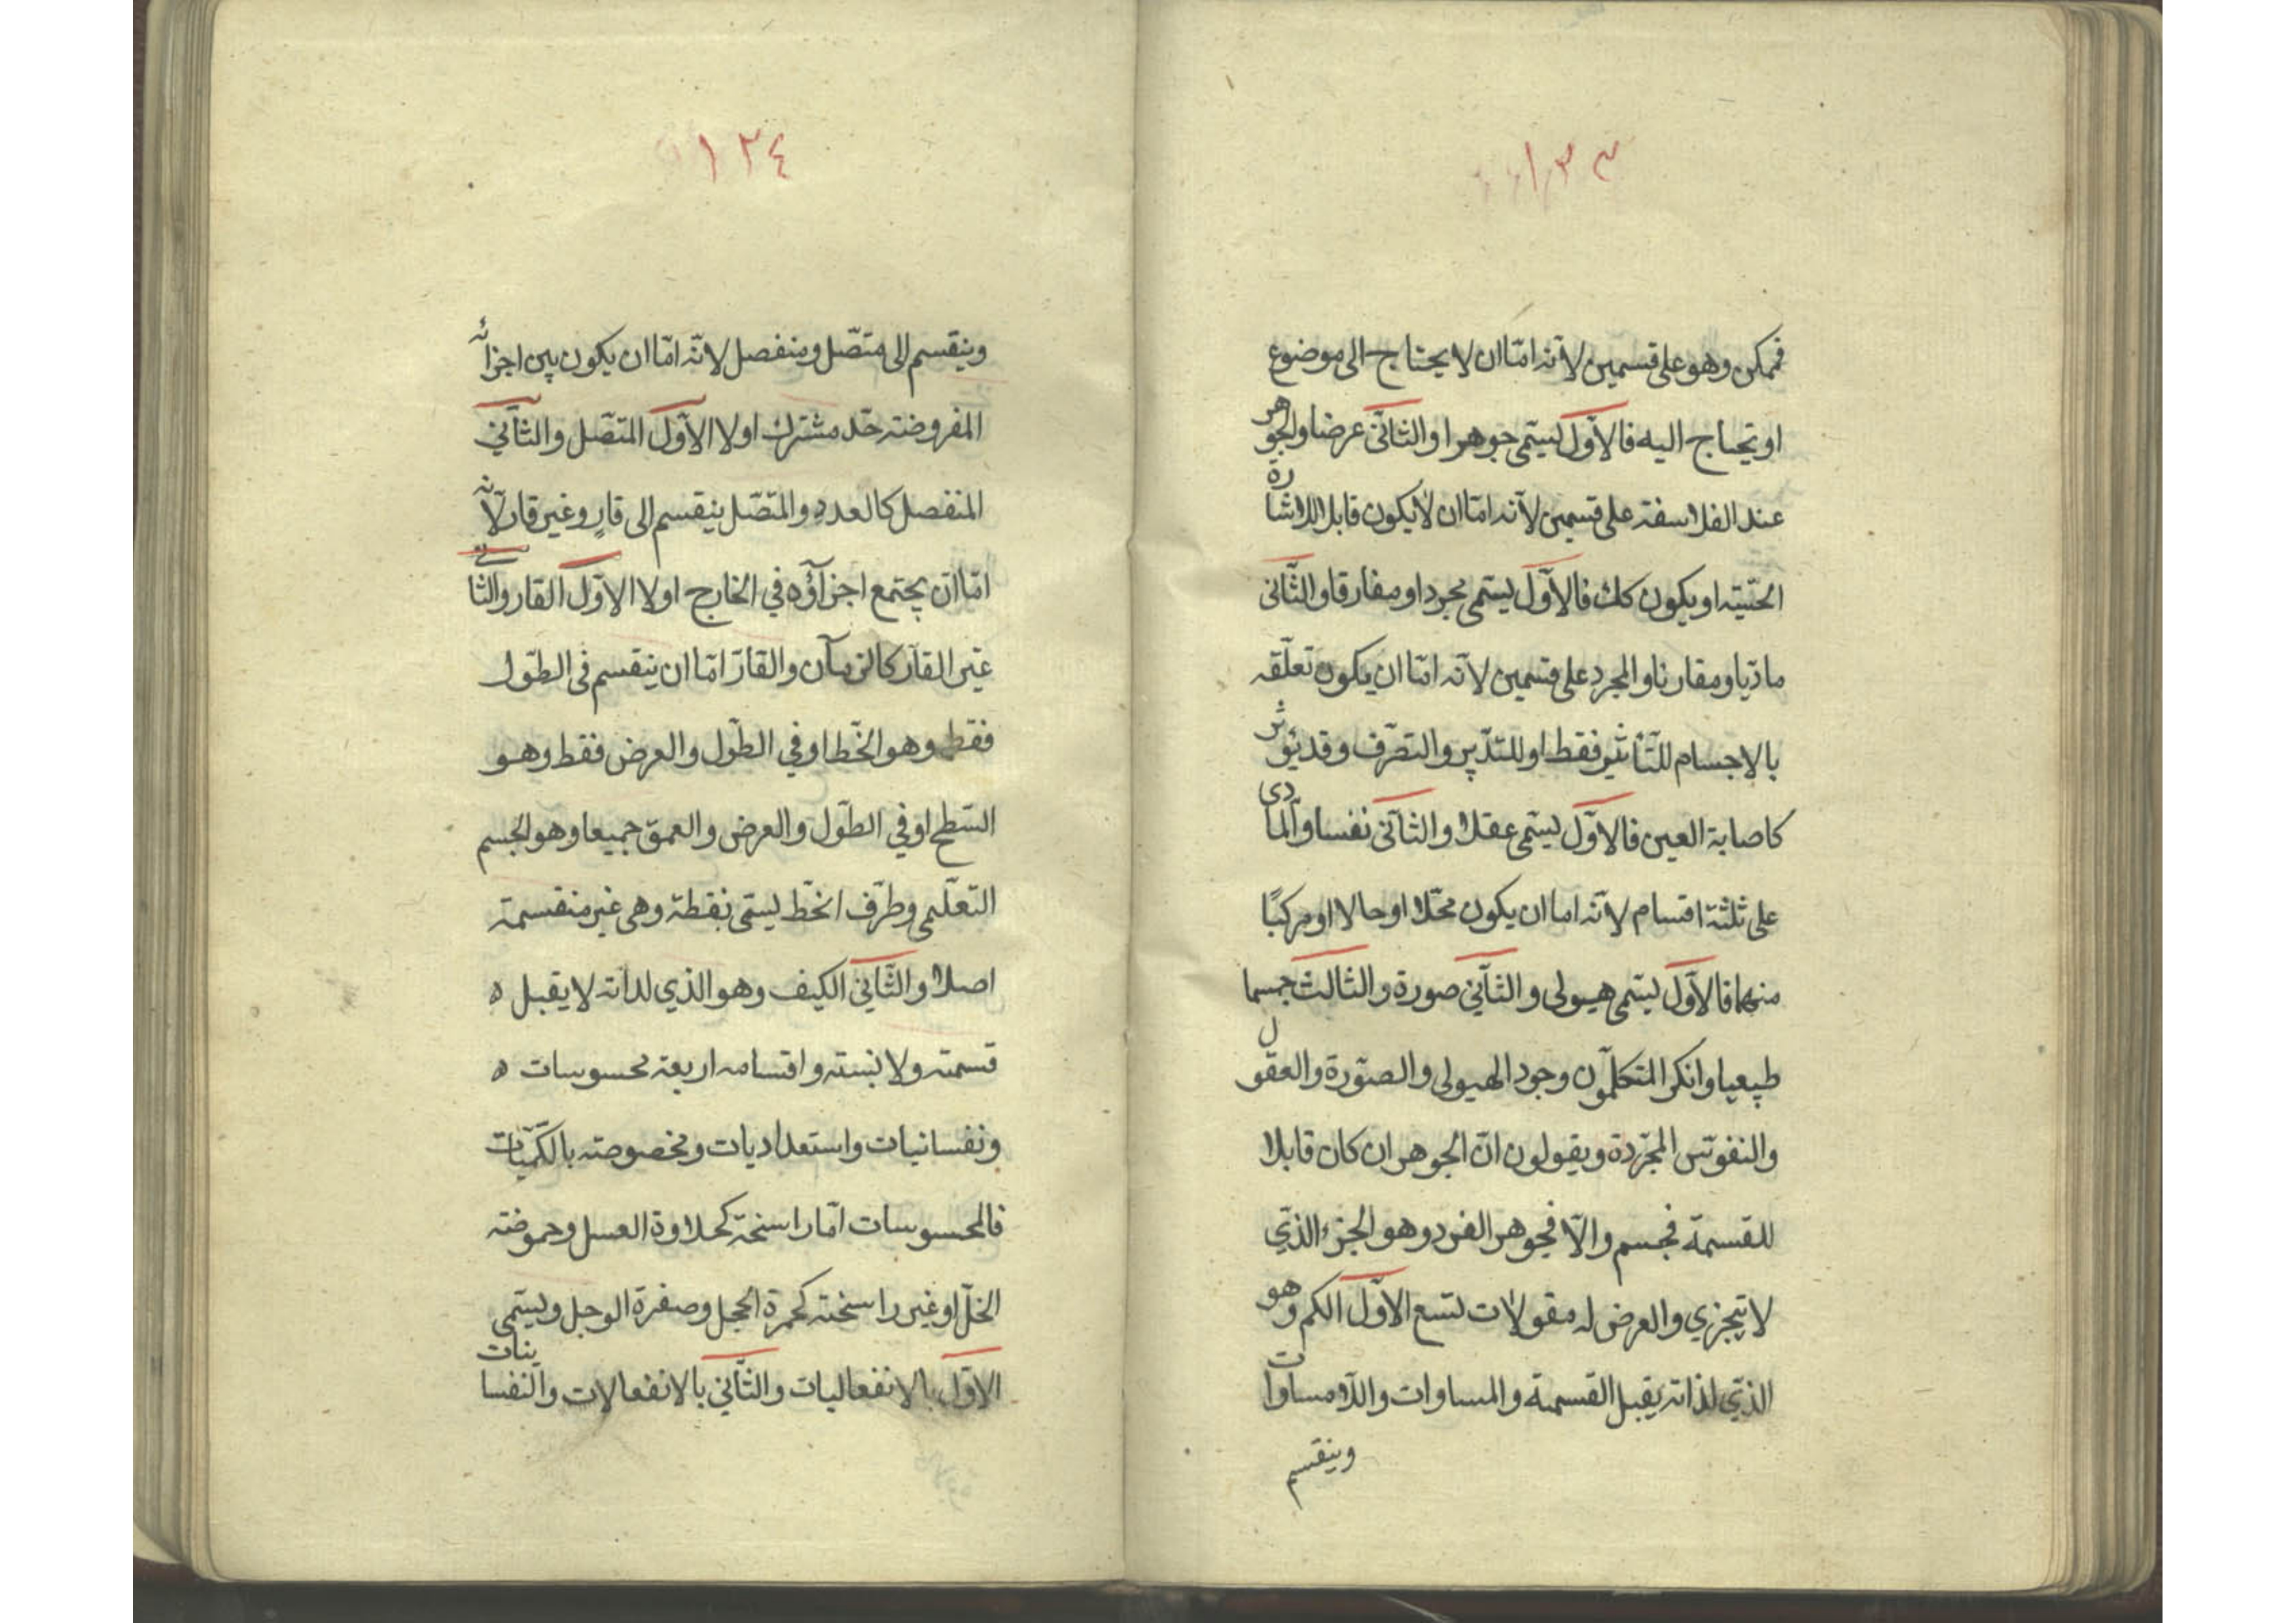 ١٣٣
فممكن وهو على قسمين لانه امّا ان لا يحتاج الى موضوع
او يحتاج اليه فالاوّل يسمّى جوهرا والثانى عرضا والجوهر
عند الفلاسفة على قسمين لانه امّا ان لا يكون قابلا للاشارة
الحسّيّة او يكون كك فالاوّل يسمّى مجردا ومفارقا والثّانى
مادّيا ومقارنا والمجرد على قسمين لانّه امّا ان يكون تعلّقه
بالاجسام للتّأثير فقط او للتدّبير والتصرّف وقد يؤثر
كاصابة العين فالاوّل يسمّى عقلا والثّانى نفسا والمادى
على ثلثة اقسام لانّه اما ان يكون محّلا او حالا او مركبًا
منهما فالاوّل يسمّى هيولى والثّاني صورة والثالث جسما
طبيعيا وانكر المتكلّمون وجود الهيولى والصّورة والعقول
والنفوس المجرّدة ويقولون انّ الجوهر ان كان قابلا
للقسمة فجسم والّا فجوهر الفرد وهو الجزء الذّي
لا يتجزي والعرض له مقولات تسع الاوّل الكم وهو
الذّي لذاته يقبل القسمة والمساوات واللّا مساوات
وينقسم
١٢٤
وينقسم الى متّصل ومنفصل لانّه امّا ان يكون بين اجزائه
المفروضة حدّ مشترك اولا الاوّل المتّصل والثّاني
المنفصل كالعدد والمتّصل ينقسم الى قارٍ وغير قار لانّه
امّا ان يجتمع اجزآؤه في الخارج اولا الاوّل القار والثانے
غير القار كالزمان والقارّ امّا ان ينقسم فى الطّول
فقط وهو الخّط او في الطّول والعرض فقط وهو
السّطح او في الطّول والعرض والعمق جميعا وهو الجسم
التّعلّيمى وطرف الخّط يسمّى نقطة وهى غير منقسمة
اصلا والثّاني الكيف وهو الذي لذاته لا يقبل ه
قسمته ولا نسبته واقسامه اربعة محسوسات ه
ونفسانيات واستعداديات ومخصوصة بالكمّيّات
فالمحسوسات امّا راسخة كحلاوة العسل وحموضة
الخلّ او غير راسخة كحمرة الخجل وصفرة الوجل ويسمّى
الاوّل بالانفعاليات والثّاني بالانفعالات والنفسانيات